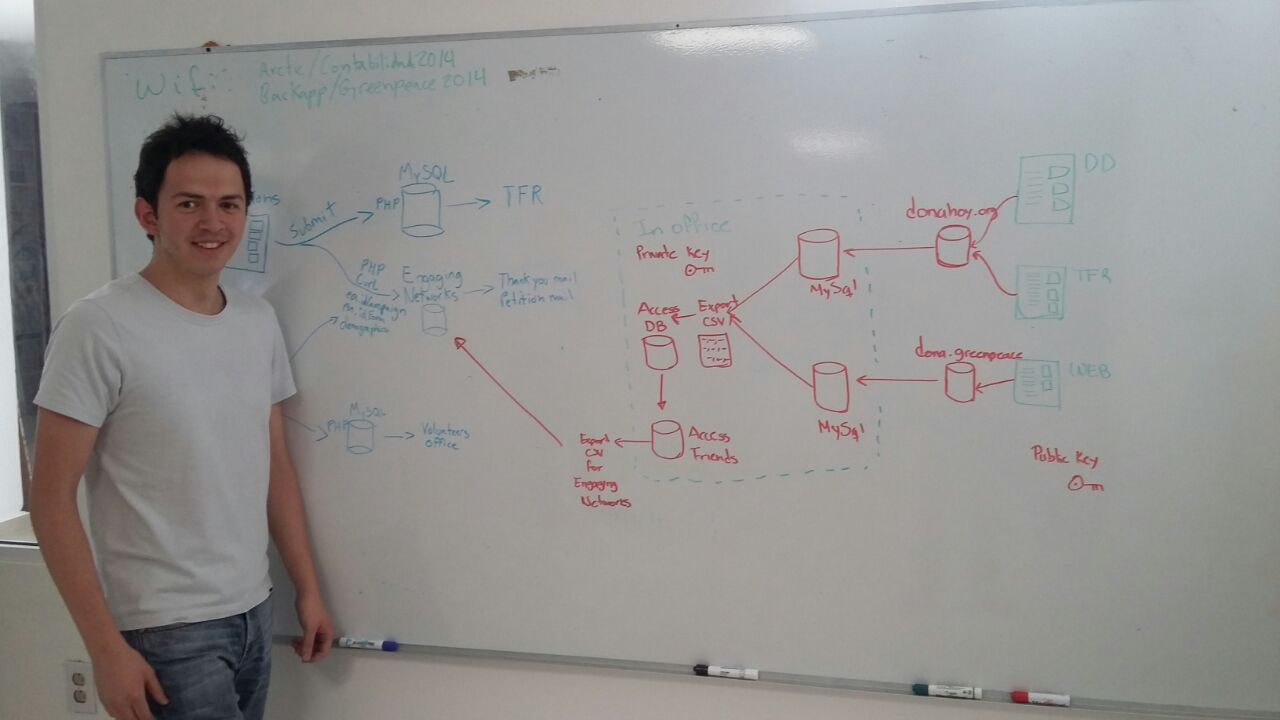 Wifi:
Arctic/Contabilidad2014
Backapp/Greenpeace2014
ons
Submit
PHP
MySQL
TFR
PHP
Curl
ea.idcampaign
ea.idForm
demographics
Engaging
Networks
Thank you mail
Petition mail
PHP
MySQL
Volunteers
office
In office
Private Key
Access
DB
Export
CSV
MySql
MySql
Access
Friends
Export
CSV
for
Engaging
Networks
donahoy.org
dona.greenpeace
DD
TFR
WEB
Public Key